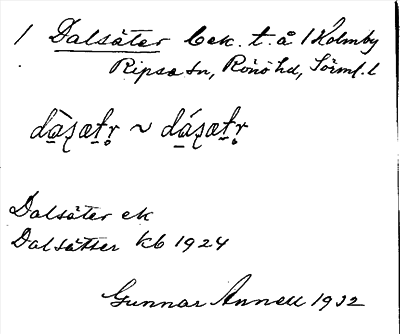 1 Dalsäter bek. t. å 1 Holmby
Ripsa sn, Rönö hd, Sörml. l
dàsætr ~ dásætr
Dalsäter ek
Dalsätter kb 1924
Gunnar Annell 1932